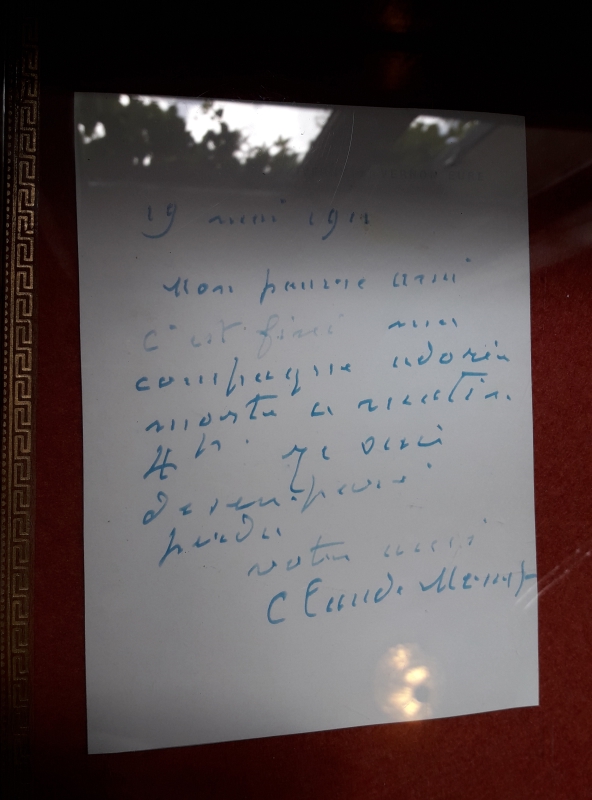 19 mai 1911
Mon pauvre ami
c'est fini ma
compagne adorée
morte ce matin
4 h. Je suis
desemparé
perdu
votre ami
Claude Monet